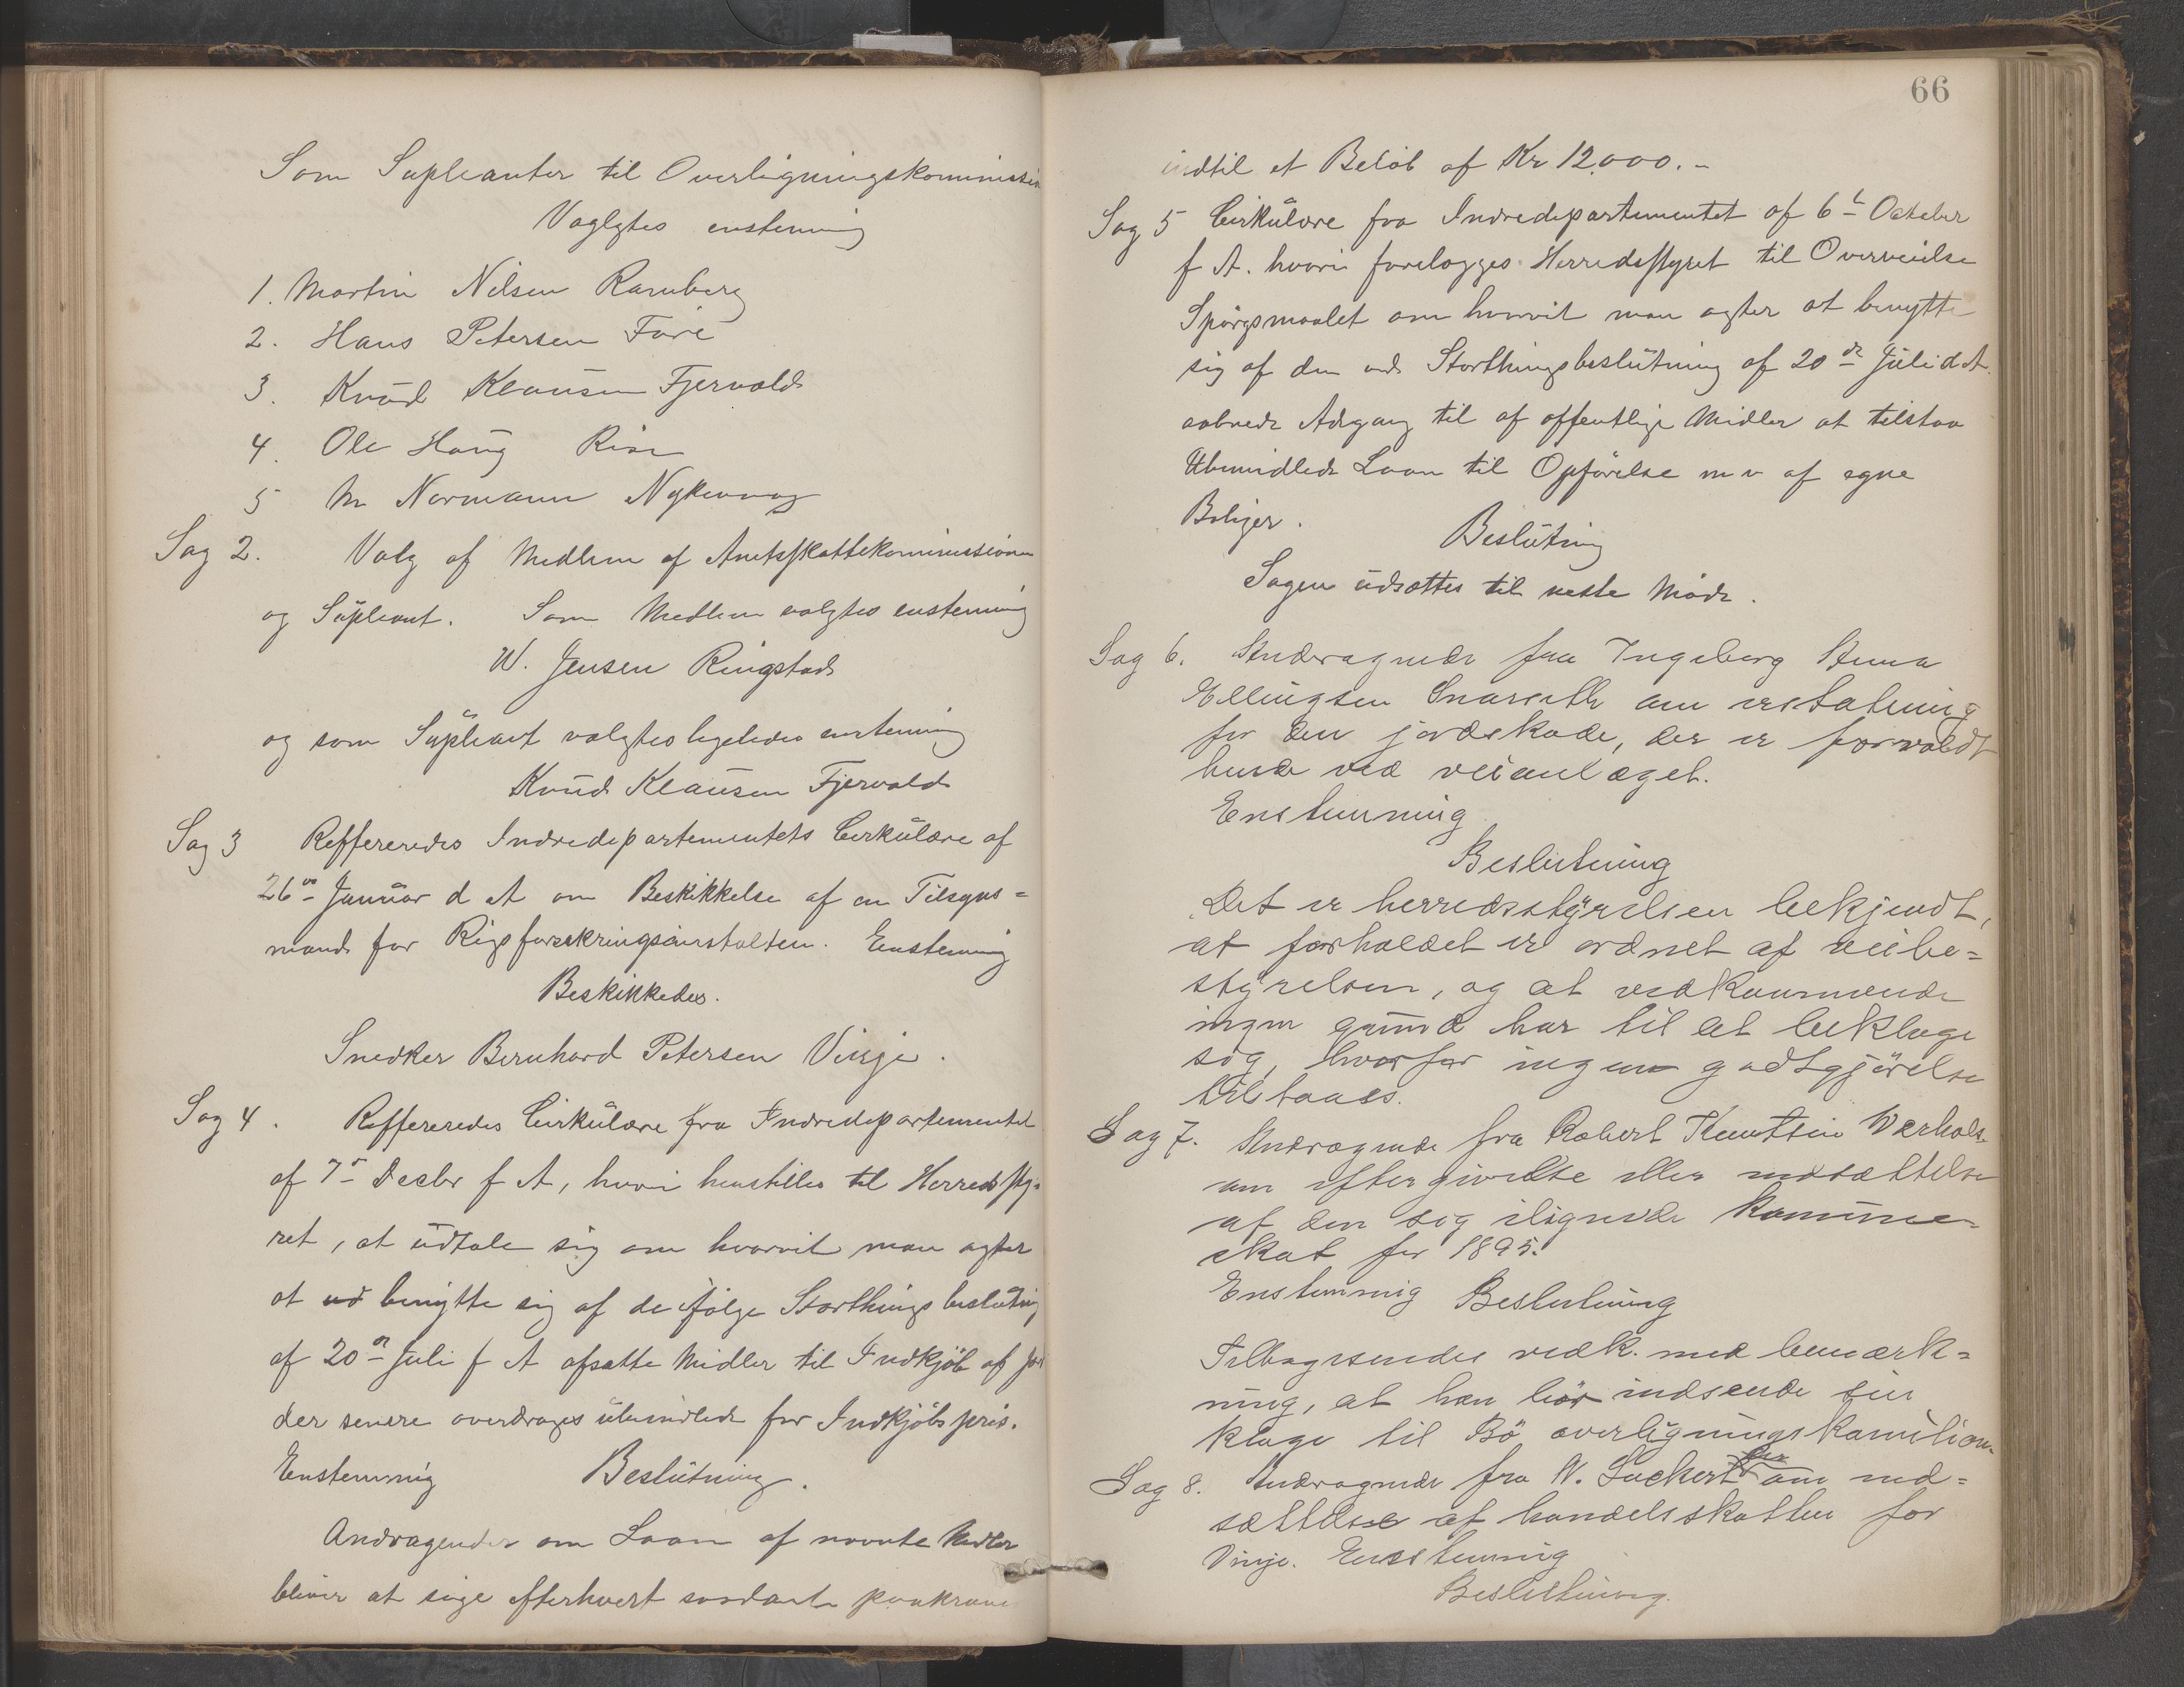 Som Supleanter til Overligningskommission
Vaglgtes enstemmig
1. Martin Nilsen Ramberg
2. Hans Petersen Føre
3. Knud Klausen Fjervold
4. Ole Haug Risø
5 M Normann Nykvaag
Sag 2. Valg af Medlem af Amtsskattekommissionen
og Supleant. Som Medlem valgtes enstemmig
W. Jensen Ringstad
og som Supleant valgtes ligeledes enstemmig
Knud Klausen Fjervold
Sag 3 Reffereredes Indredepartementets Cirkulære af
26de Januar d A om Beskikkelse af en Tilsyns=
mand for Rigsforsikringsanstalten. Enstemmig
Beskikkedes.
Snedker Bernhard Petersen Vinje.
Sag 4. Reffereredes Cirkulære fra Indredepartementet
af 7de Decbr f A, hvori henstilles til Herredssty-
ret, at udtale sig om hvorvit man agter
at benytte sig af de ifølge Storthingsbeslutning
af 20de Juli f A afsatte Midler til Indkjøb af Jord
der senere overdrages ubemidlede for Indkjøbspris.
Enstemmig Beslutning.
Andragender om Laan af nævnte Midler
bliver at søge efterhvert saadant paakræves
66
indtil et Beløb af Kr 12,000.-
Sag 5 Cirkulære fra Indredepartementet af 6te October
f A. hvori forelægges Herredsstyret til Overveielse
Spørgsmaalet om hvorvit man agter at benytte
sig af den ved Storthingsbeslutning af 20de Juli d A.
aabnede Adgang til af offentlige Midler at tilstaa
Ubemidlede Laan til Opførelse m v af egne
Boliger.
Beslutning
Sagen udsættes til neste Møde.
Sag 6. Andragende fra Ingeborg Anna
Ellingsen Snarseth om erstatning
for den jordskade, der er forvoldt
hende ved veianlæget.
Enstemmig
Beslutning
Det er herredsstyrelsen bekjendt,
at forholdet er ordnet af veibe=
styrelsen, og at vedkommende
ingen grund har til at beklage
sig, hvorfor ingen godtgjørelse
tilstaaes.
Sag 7. Andragende fra Robert Knutsen Verhals.
om eftergivelse eller nedsættelse
af den sig ilignede Kommune-
skat for 1895.
Enstemmig Beslutning
Tilbagesendes vedk. med bemærk=
ning, at han bør indsende sin
klage til Bø overligningskommission.
Sag 8. Andragende fra N. Luckert om ned=
sættelse af handelsskatten for
Vinje. Enstemmig
Beslutning.